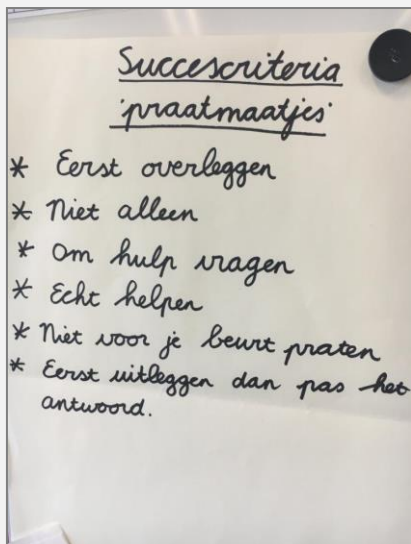 Succescriteria
'praatmaatjes'
* Eerst overleggen
* Niet alleen
* Om hulp vragen
* Echt helpen
* Niet voor je beurt praten
* Eerst uitleggen dan pas het
antwoord.